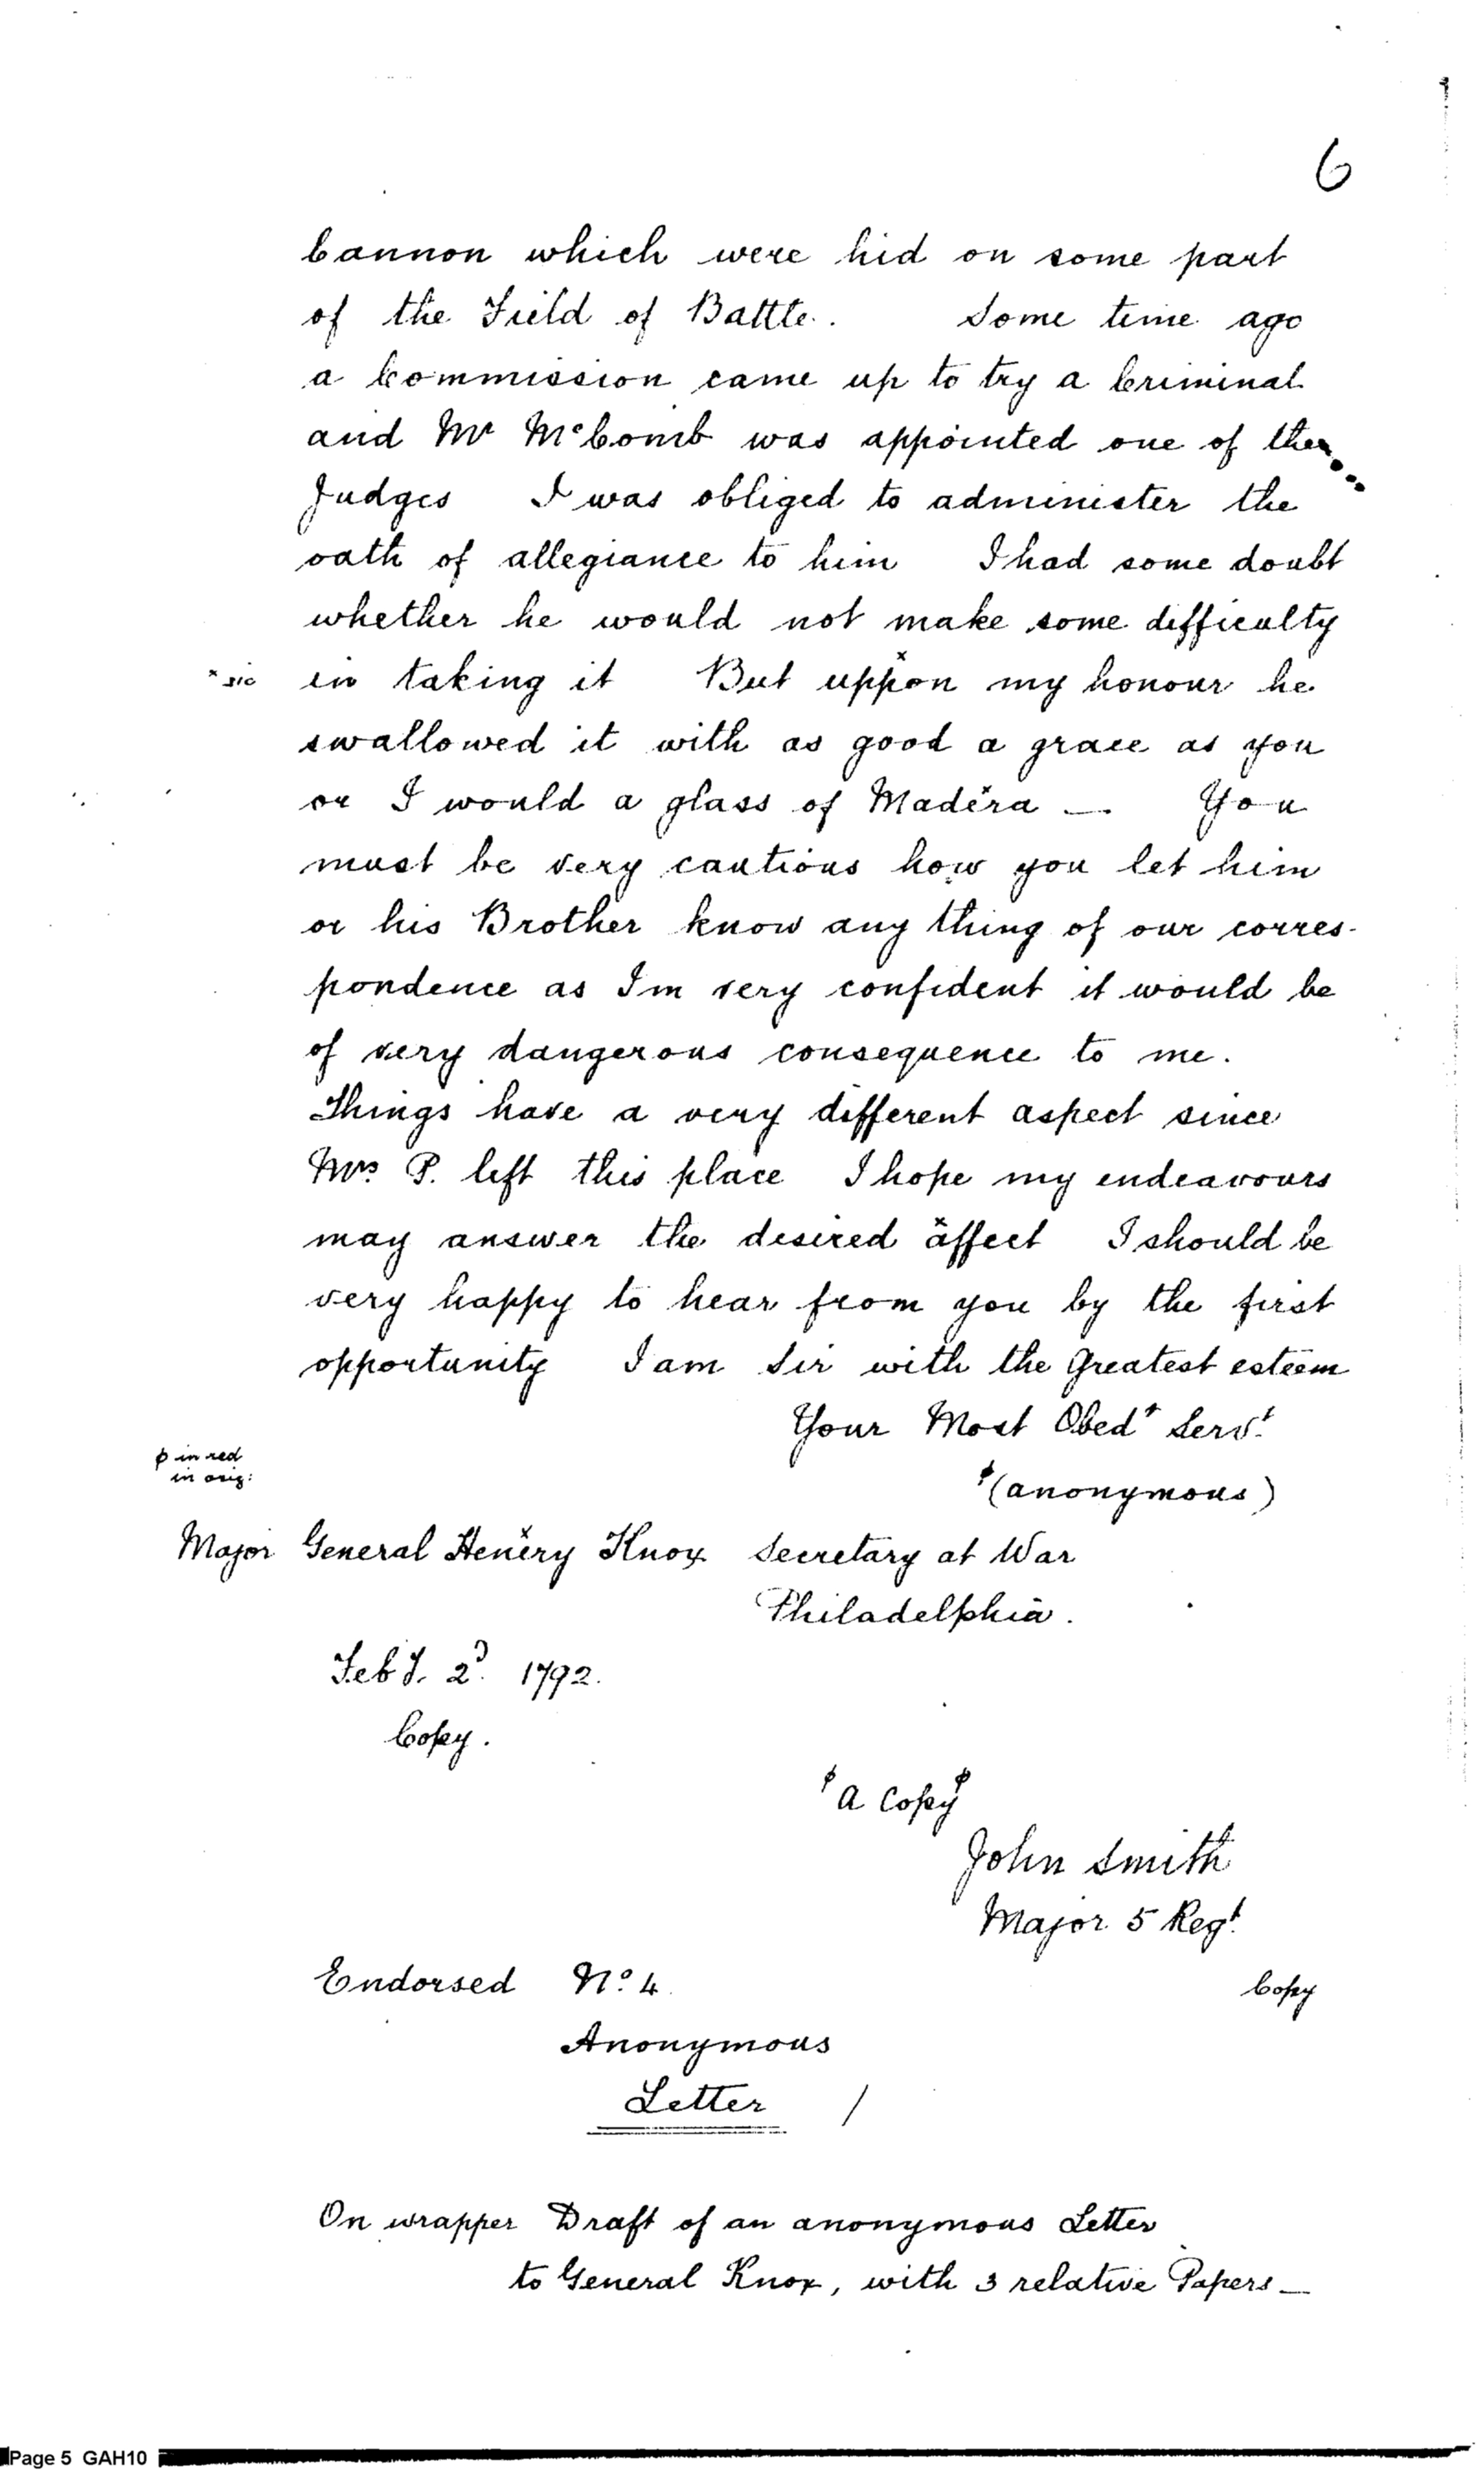 6
Cannon which were hid on some part
of the Field of Battle. Some time ago
a Commission came up to try a Criminal
and Mr McComb was appointed one of the
Judges I was obliged to administer the
oath of allegiance to him I had some doubt
whether he would not make some difficulty
x sic in taking it But uppon x my honour he
swallowed it with as good a grace as you
or I would a glass of Madera x — You
must be very cautious how you let him
or his Brother know any thing of our corres-
pondence as Im very confident it would be
of very dangerous consequence to me.
Things have a very different aspect since
Mrs. P. left this place I hope my endeavours
may answer the desired affect x I should be
very happy to hear from you by the first
opportunity I am Sir with the Greatest esteem
Your Most Obedt Servt.
ϕ in red
in orig:
ϕ (anonymous)
Major General Henery x Knox Secretary at War
Philadelphia.
Feby. 2d. 1792.
Copy.
ϕ A Copy ϕ
John Smith
Major 5 Regt.
Endorsed No. 4 Copy
Anonymous
Letter /
On wrapper Draft of an anonymous Letter
to General Knox, with 3 relative Papers —
Page 5 GAH10